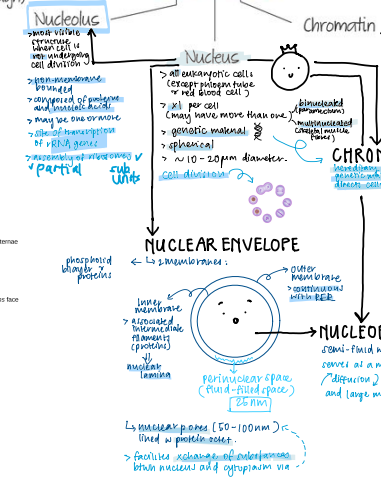 Nucleolus
Chromatin
> most visible
structure
when cell is
not undergoing
cell division
> non-membrane
bounded
> composed of proteins
and nucleic acids
> may be one or more
> site of transcription
of rRNA genes
> assembly of ribosomes
partial sub
units
Nucleus
> all eukaryotic cells
(except phloem tube
& red blood cell)
> x1 per cell
(may have more than one)
binucleated
(paramecium)
multinucleated
(skeletal muscle
fibres)
> genetic material
> spherical
> ~10-20µm diameter.
cell division
CHROM
hereditary
genetic
directs cell
NUCLEAR ENVELOPE
phospholid
bilayer &
proteins
↳ 2 membranes:
ternae
s face
inner
membrane
> associated
intermediate
filaments
(proteins)
nuclear
lamina
outer
membrane
> continuous
with RER
perinuclear space
(fluid-filled space)
25nm
NUCLEOP
semi-fluid
serves as a m
(diffusion)
and large m
↳ nuclear pores (50-100nm)
lined w protein octet.
> facilites xchange of substances
btwn nucleus and cytoplasm via